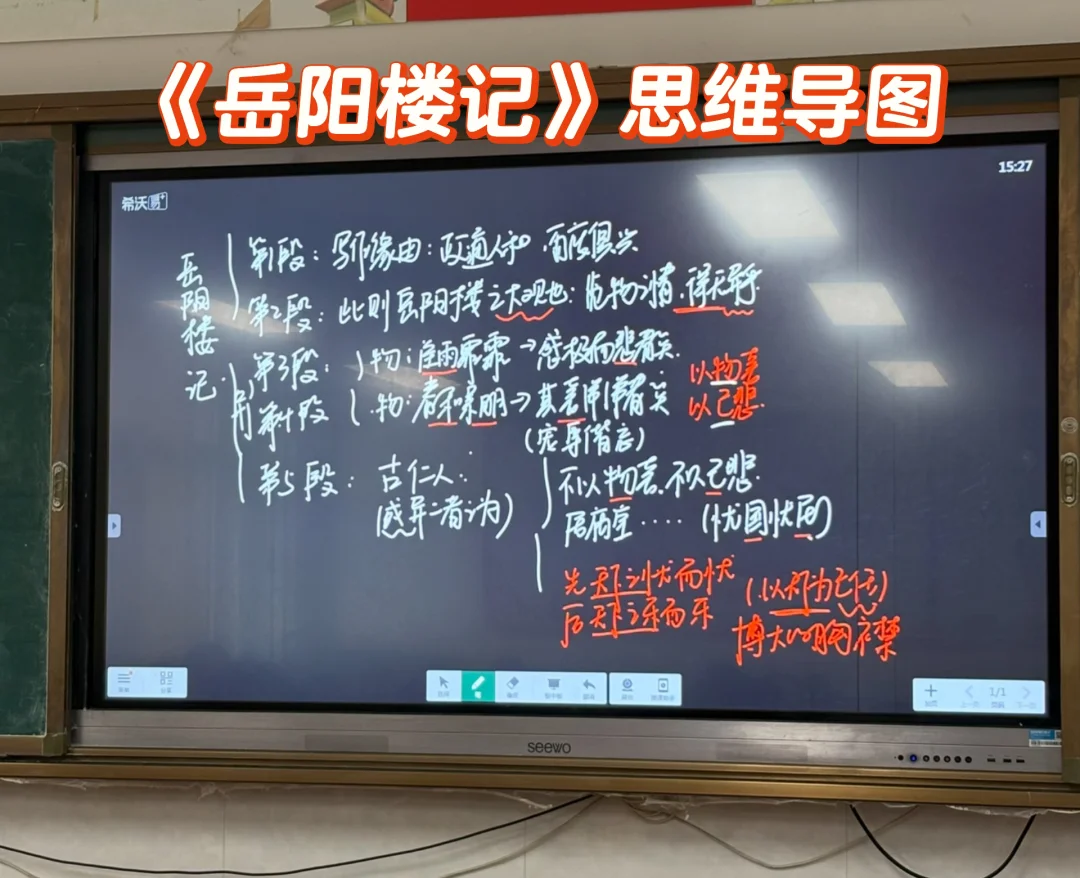 《岳阳楼记》思维导图
15:27
希沃易+
岳阳楼记
第1段：写作缘由：政通人和，百废俱兴
第2段：此则岳阳楼之大观也：览物之情，得无异乎
第3段：物：淫雨霏霏→感极而悲者矣
以物喜
第4段 物：春和景明→其喜洋洋者矣
以己悲
(宠辱偕忘)
第5段：古仁人：
不以物喜，不以己悲
(或异二者之为)
居庙堂····(忧国忧民)
先天下之忧而忧
后天下之乐而乐
(以天下为己任)
博大的胸襟
1/1
seewo